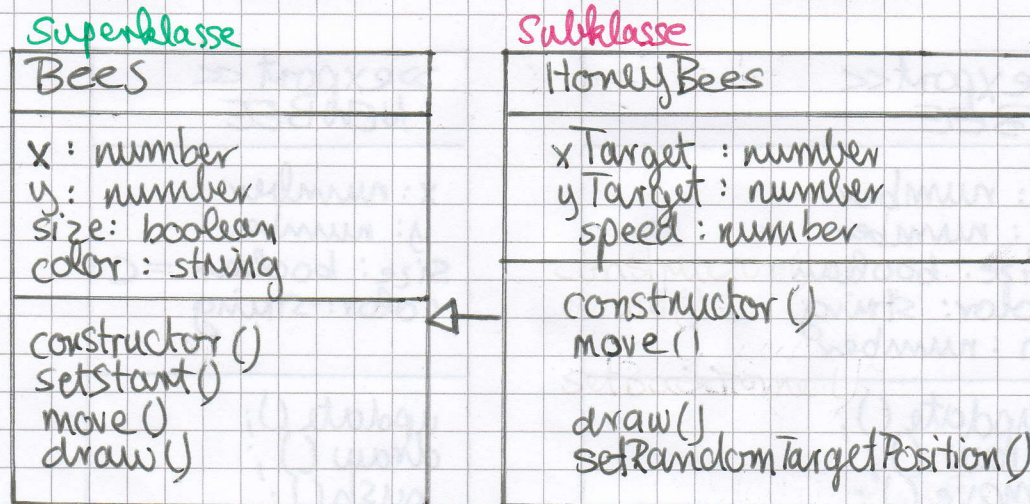 Superklasse
Bees
x : number
y : number
size: boolean
color : string
constructor ()
setStart()
move ()
draw ()
Subklasse
HoneyBees
xTarget : number
yTarget : number
speed : number
constructor ()
move ()
draw ()
setRandomTargetPosition()